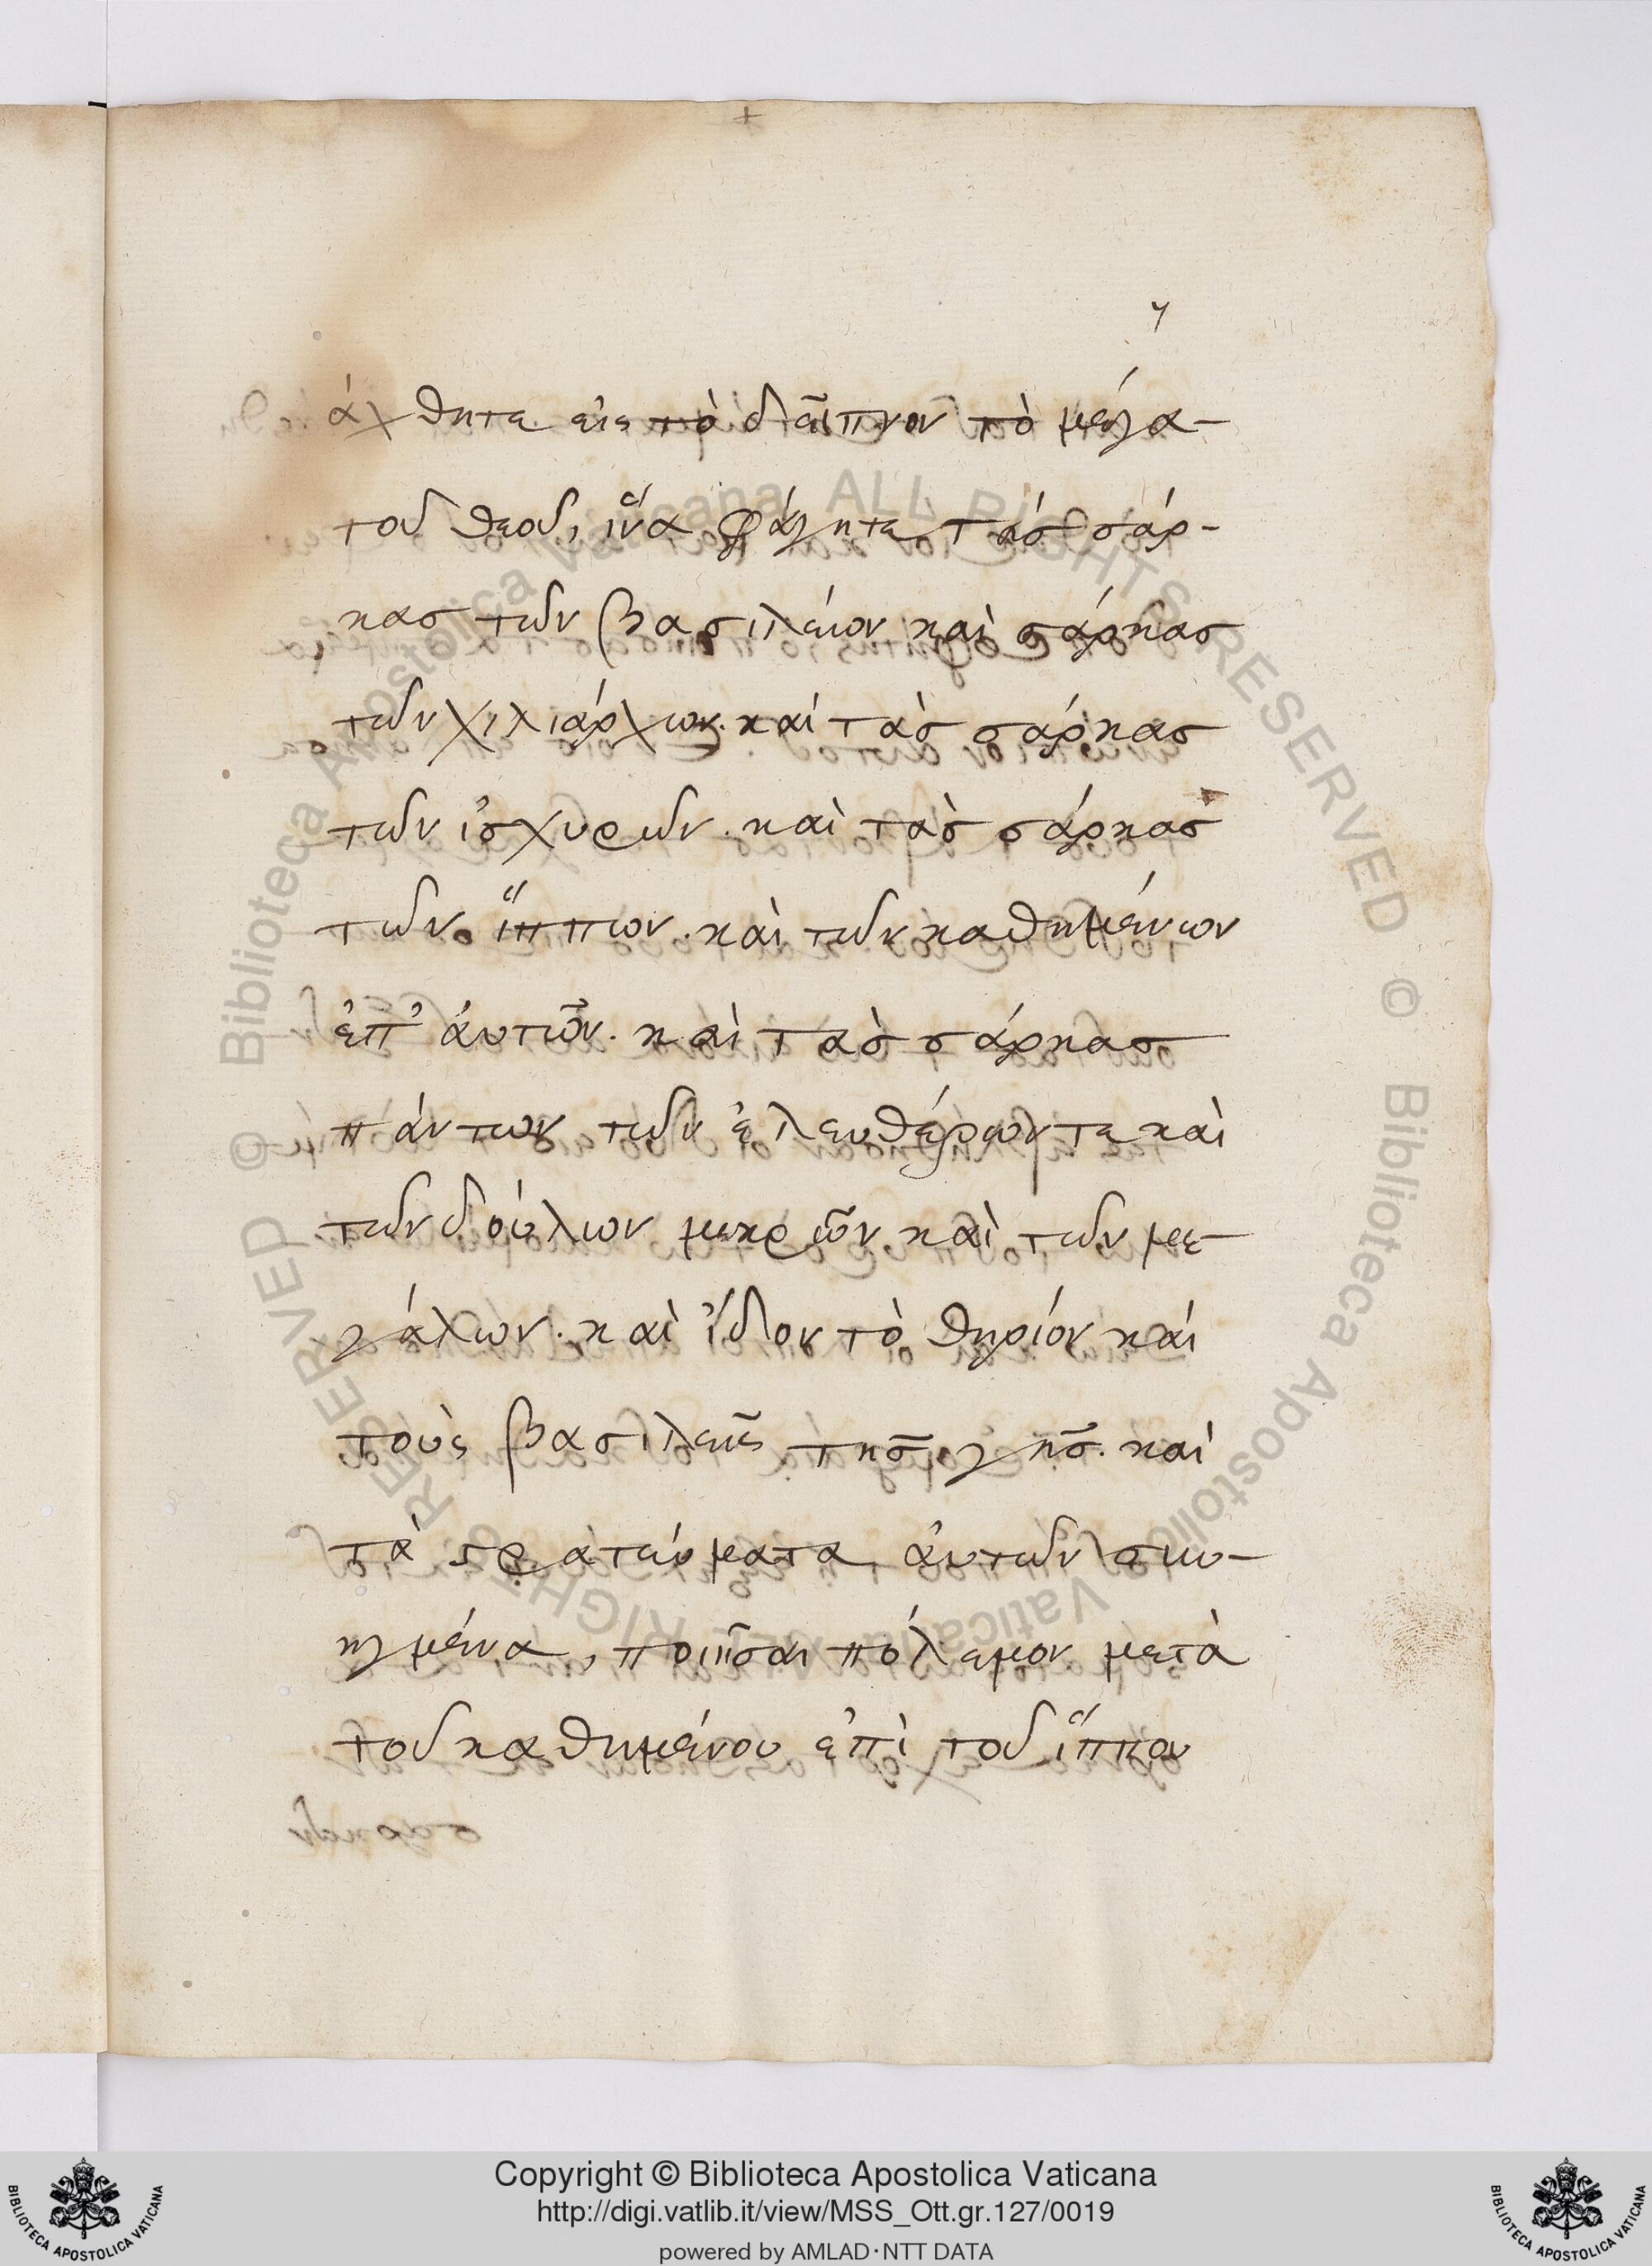 γ
άχθητε εἰς τὸ δεῖπνον τὸ μέγα-
τοῦ θεοῦ, ἵνα φάγητε τὰσ σάρ-
κασ τῶν βασιλείον καὶ σάρκασ
τῶν χιλιάρχων. καὶ τὰσ σάρκασ
τῶν ἰσχυρῶν. καὶ τὰσ σάρκασ
τῶν ἵππων. καὶ τῶν καθημένων
ἐπ' ἀυτῶν. καὶ τὰσ σάρκασ
πάντων τῶν ἐλευθέρων τε καὶ
τῶν δούλων μικρῶν. καὶ τῶν με-
γάλων. καὶ ἴδον τὸ θηρίον καί
τοὺς βασιλεῖς τῆσ γῆσ. καὶ
τὰ στρατεύματα ἀυτῶν συν-
ηγμένα, ποιῆσαι πόλεμον μετὰ
τοῦ καθημένου ἐπὶ τοῦ ἵππου
Copyright © Biblioteca Apostolica Vaticana
http://digi.vatlib.it/view/MSS_Ott.gr.127/0019
powered by AMLAD·NTT DATA
BIBLIOTECA APOSTOLICA VATICANA
BIBLIOTECA APOSTOLICA VATICANA